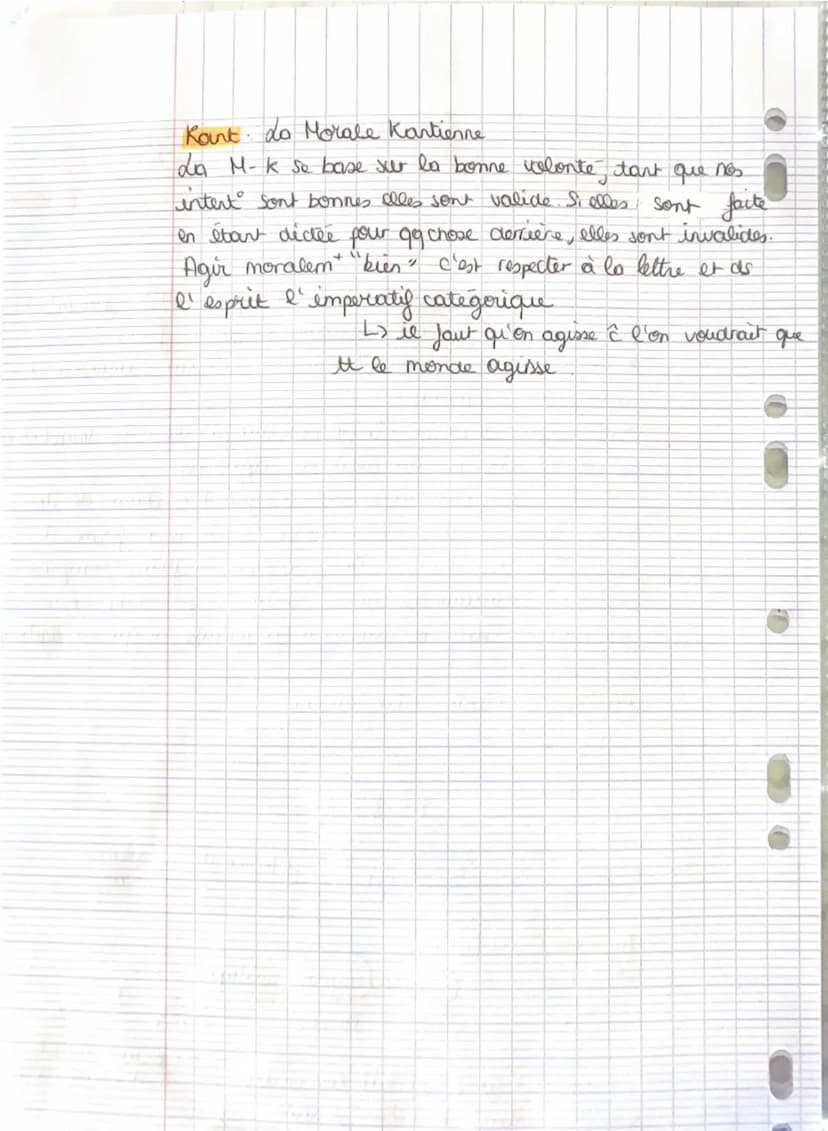 Kant. La Morale Kantienne
La M-K se base sur la bonne volonté, tant que nos
intent° sont bonnes elles sont valide. Si elles sont faite
en étant dictée pour qq chose derrière, elles sont invalides.
Agir moralemt "bien" c'est respecter à la lettre et ds
l'esprit l'imperatif catégorique
↳ il faut qu'on agisse ĉ l'on voudrait que
tt le monde agisse